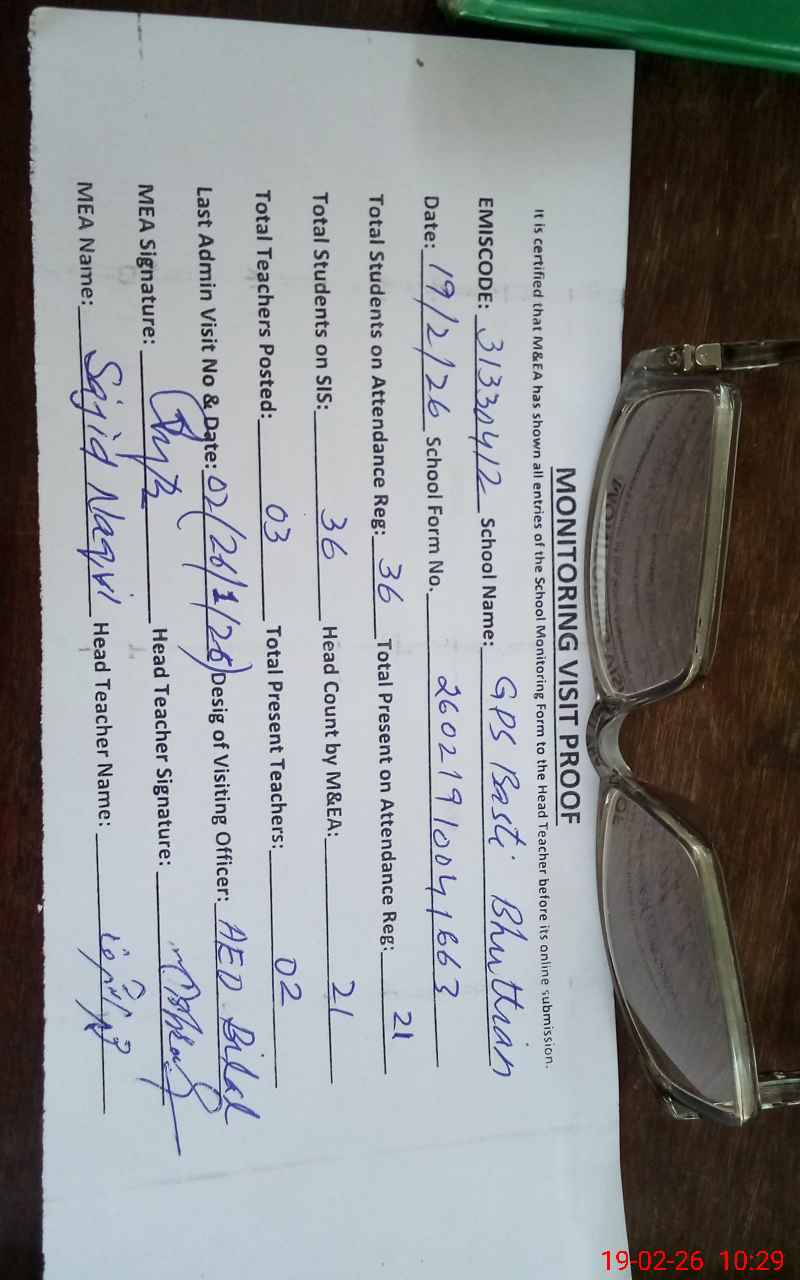 MONITORING VISIT PROOF
It is certified that M&EA has shown all entries of the School Monitoring Form to the Head Teacher before its online submission.
EMISCODE: 31330412 School Name: GPS Basti Bhuttian
Date: 19/2/26 School Form No. 26021910041663
Total Students on Attendance Reg: 36 Total Present on Attendance Reg: 21
Total Students on SIS: 36 Head Count by M&EA: 21
Total Teachers Posted: 03 Total Present Teachers: 02
Last Admin Visit No & Date: 02(26/1/26) Desig of Visiting Officer: AEO Bilal
MEA Signature: Head Teacher Signature:
MEA Name: Sajid Naqvi Head Teacher Name:
19-02-26 10:29